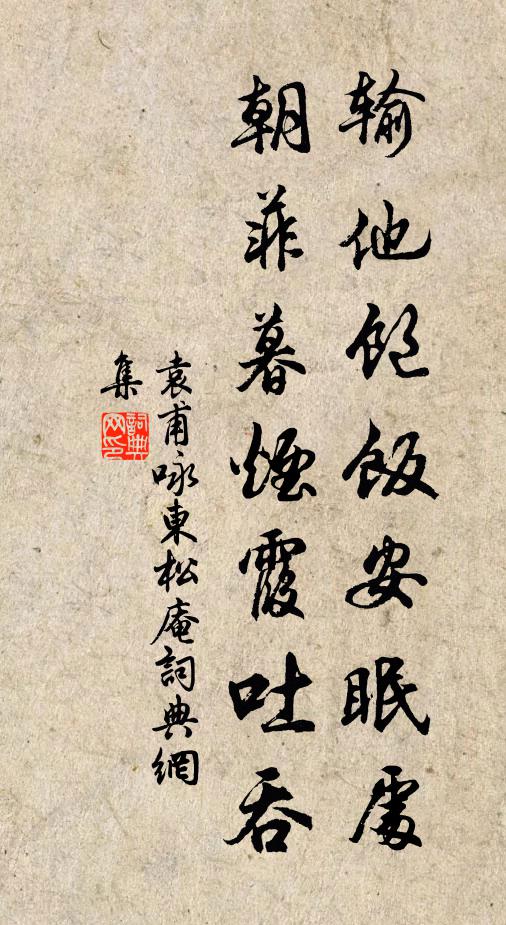 輸他飽飯安眠處
朝菲暮煙霞吐吞
袁甫咏東松庵詞典網
集
詞典網印